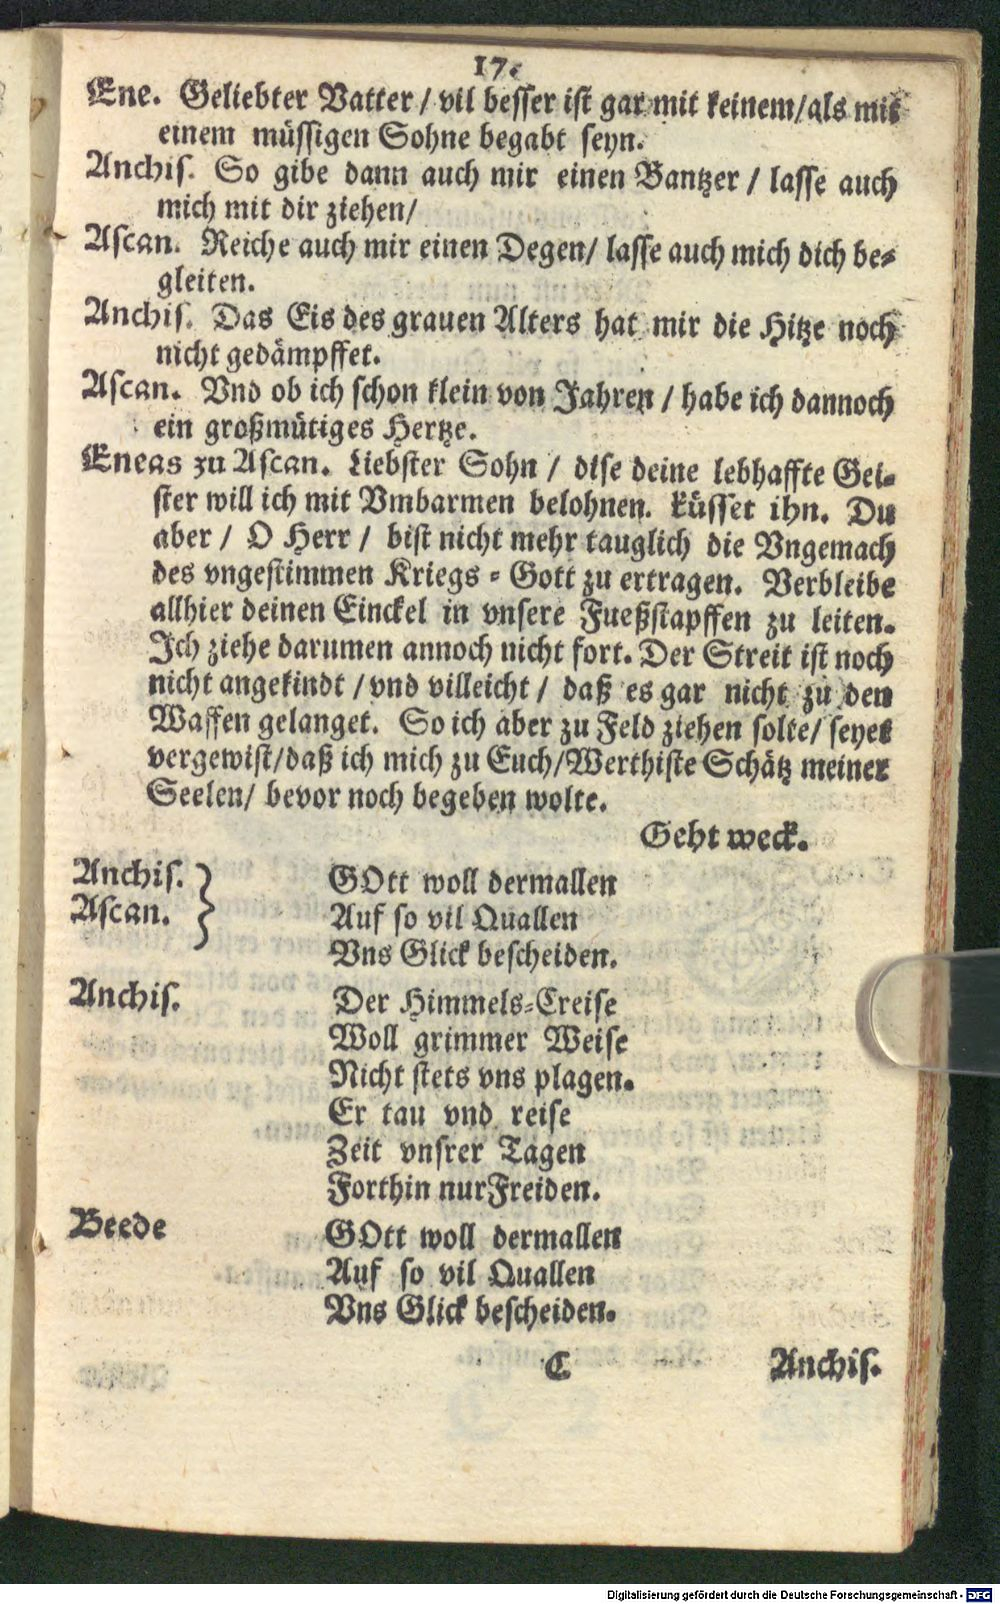 17.
Ene. Geliebter Vatter / vil besser ist gar mit keinem/als mit
einem müssigen Sohne begabt seyn.
Anchis. So gibe dann auch mir einen Bantzer / lasse auch
mich mit dir ziehen/
Ascan. Reiche auch mir einen Degen/ lasse auch mich dich be⸗
gleiten.
Anchis. Das Eis des grauen Alters hat mir die Hitze noch
nicht gedämpffet.
Ascan. Vnd ob ich schon klein von Jahren / habe ich dannoch
ein großmütiges Hertze.
Eneas zu Ascan. Liebster Sohn / dise deine lebhaffte Gei⸗
ster will ich mit Vmbarmen belohnen. küsset ihn. Du
aber / O Herr / bist nicht mehr tauglich die Vngemach
des vngestimmen Kriegs ⸗ Gott zu ertragen. Verbleibe
allhier deinen Einckel in vnsere Fueßstapffen zu leiten.
Ich ziehe darumen annoch nicht fort. Der Streit ist noch
nicht angekindt / vnd villeicht / daß es gar nicht zu den
Waffen gelanget. So ich aber zu Feld ziehen solte/ seyet
vergewist/daß ich mich zu Euch/Werthiste Schätz meiner
Seelen/ bevor noch begeben wolte.
Geht weck.
Anchis. } GOtt woll dermallen
Ascan. Auf so vil Quallen
Vns Glick bescheiden.
Anchis. Der Himmels⸗Creise
Woll grimmer Weise
Nicht stets vns plagen.
Er tau vnd reise
Zeit vnsrer Tagen
Forthin nur Freiden.
Beede GOtt woll dermallen
Auf so vil Quallen
Vns Glick bescheiden.
C Anchis.
Digitalisierung gefördert durch die Deutsche Forschungsgemeinschaft - DFG